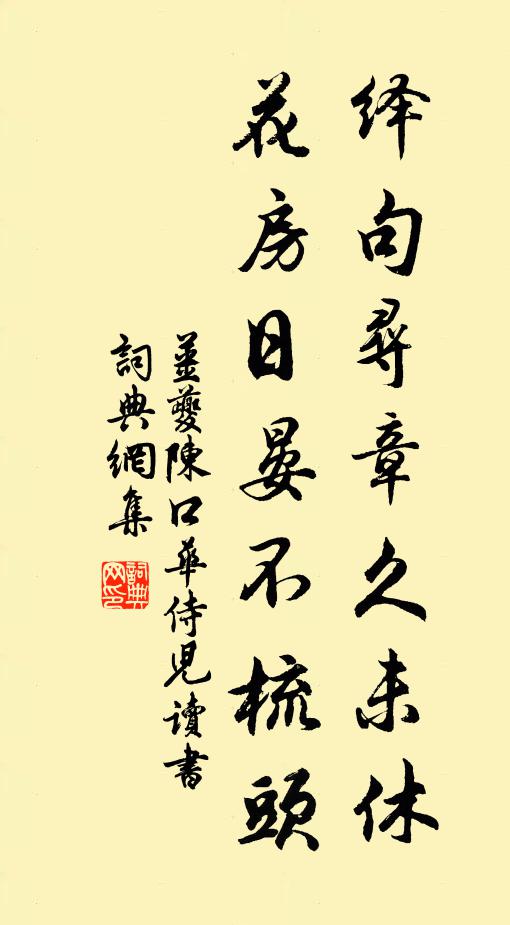 绎句尋章久未休
花房日晏不梳頭
姜夔陳口華侍児讀書
詞典網集
詞典网印